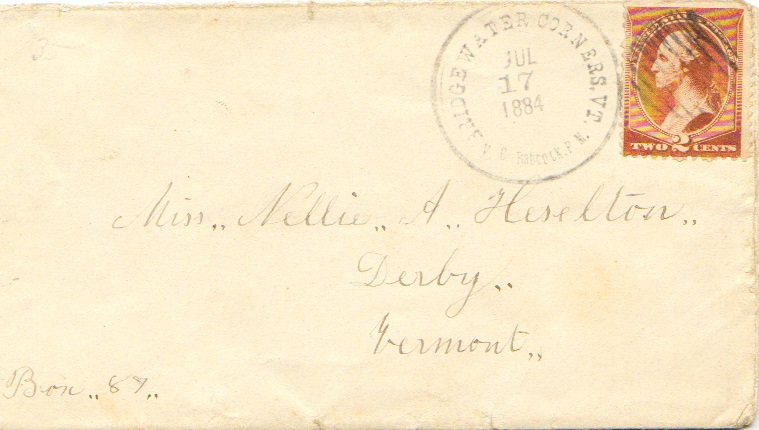 3
BRIDGEWATER CORNERS, VT.
JUL
17
1884
P.M.
TWO 2 CENTS
Miss,, Nellie,, A,, Heselton,,
Derby,,
Vermont,,
Box,, 87,,